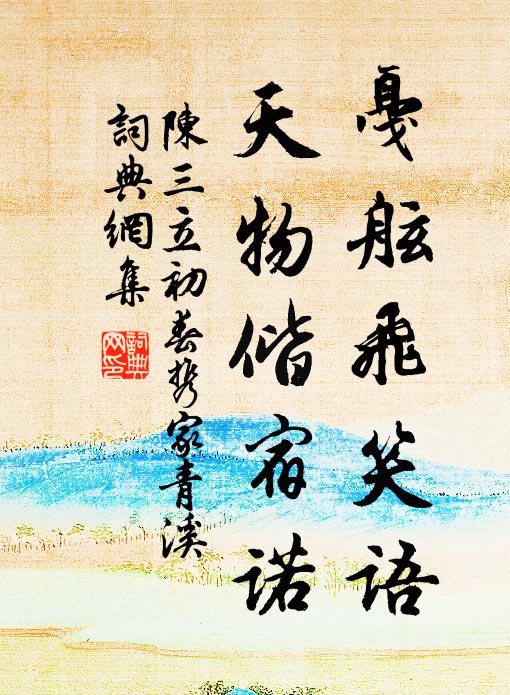 戛舷飛笑語
天物偕宿諾
陳三立初春携家青溪
詞典網集
詞典
网印